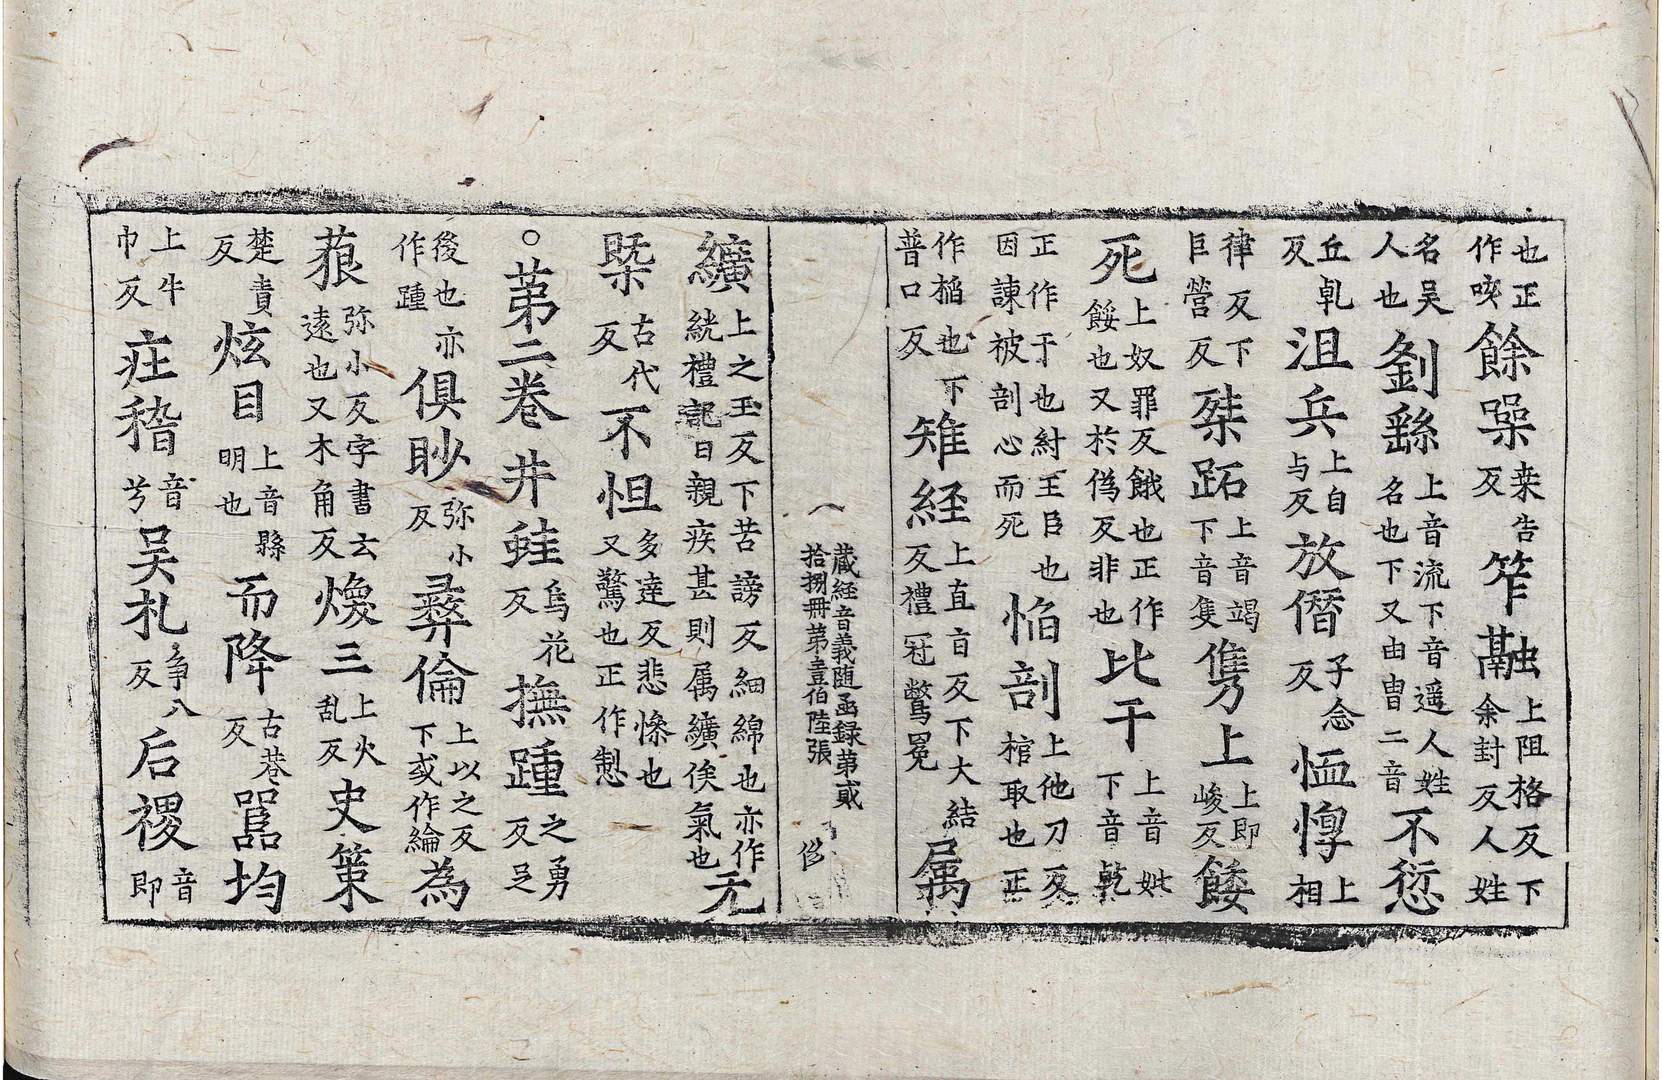 也正作咳餘喿桒告反笮融上阻格反下余封反人姓
名吴人也劉繇上音流下音遥人姓名也下又由冑二音不愆
丘乹反沮兵上自与反放僭子念反恤惸上相
律反下巨營反桀跖上音竭下音隻雋上上即峻反餧
死上奴罪反餓也正作餒也又於偽反非也比干上音妣下音乾
正作于也紂王臣也因諫被剖心而死㤺剖上他刀反棺取也正
作槄也下普口反雉経上直旨反下大結反禮冠鷩冕属
藏経音義随函録第貳拾捌冊第壹伯陸張
纊上之玉反下苦謗反細綿也亦作絖禮記曰親疾甚則属纊俟氣也无
槩古代反不怛多達反悲慘也又驚也正作㤠
○苐二卷井蛙烏花反撫踵之勇反足
後也亦作踵俱眇弥小反彛倫上以之反下或作綸為
藐弥小反字書云遠也又木角反煥三上火乱反史策
楚責反炫目上音縣明也而降古巷反嚚均
上牛巾反疰稽音兮吴札争八反后稷音即